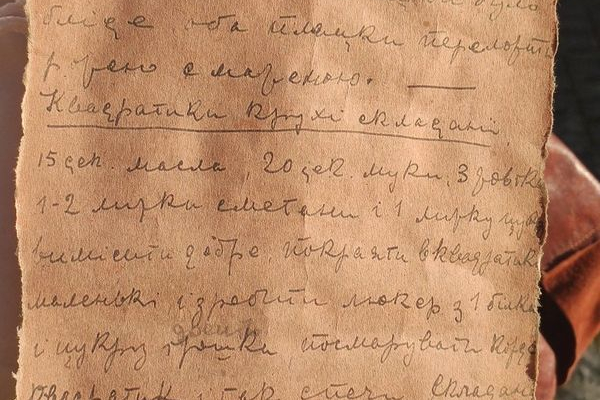 бліде оба пляцки переложит
смаженою.
Квадратики крухі складані.
15 дек. масла, 20 дек. муки, 3 жовтк
1-2 лижки сметани і 1 лижку цук
вимісити добре, покраяти в квадратик
маленькі і зробити люкер з 1 білка
і цукру трошки, посмарувати кожд
квадратик і так спечи складані